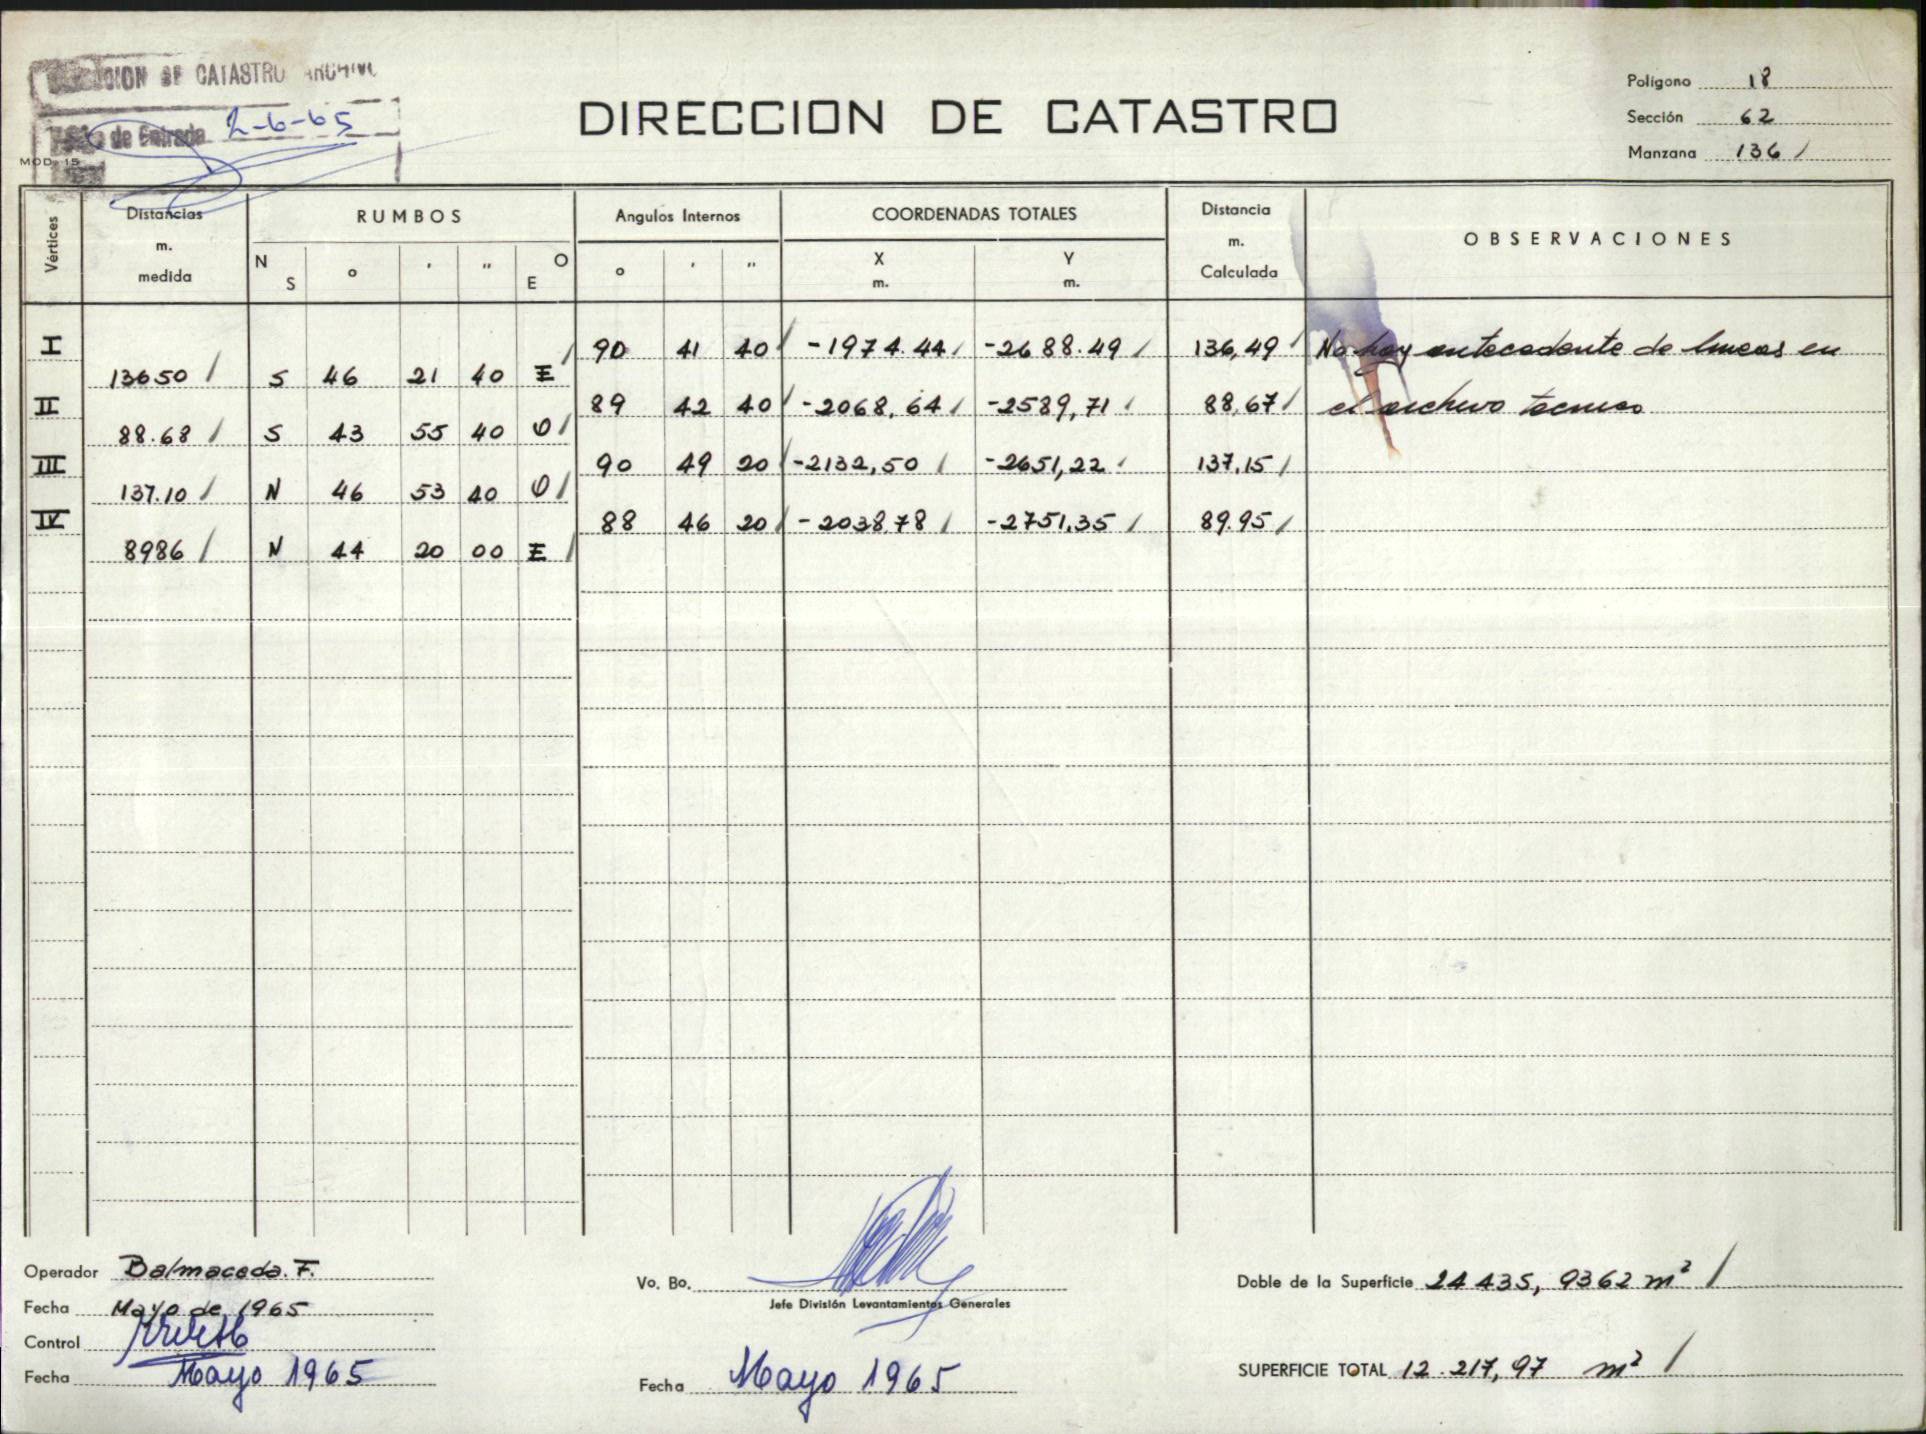 CION DE CATASTRO ARCHIVO
de Entrada 2-6-65
MOD. 15
DIRECCION DE CATASTRO
Polígono 18
Sección 62
Manzana 136 /
Vértices
Distancias m. medida
RUMBOS
N S ° ' " E O
Angulos Internos
° ' "
COORDENADAS TOTALES
X m. Y m.
Distancia m. Calculada
OBSERVACIONES
I 90 41 40 / -1974.44 / -2688.49 / 136,49 / No hay antecedente de lineas en
13650 / S 46 21 40 E /
II 89 42 40 / -2068,64 / -2589,71 / 88,67 / el archivo tecnico
88.68 / S 43 55 40 O /
III 90 49 20 / -2132,50 / -2651,22 / 137,15 /
137.10 / N 46 53 40 O /
IV 88 46 20 / -2038,78 / -2751,35 / 89.95 /
8986 / N 44 20 00 E /
Operador Balmaceda. F.
Fecha Mayo de 1965
Control
Fecha Mayo 1965
Vo. Bo.
Jefe División Levantamientos Generales
Fecha Mayo 1965
Doble de la Superficie 24 435, 9362 m² /
SUPERFICIE TOTAL 12.217,97 m² /